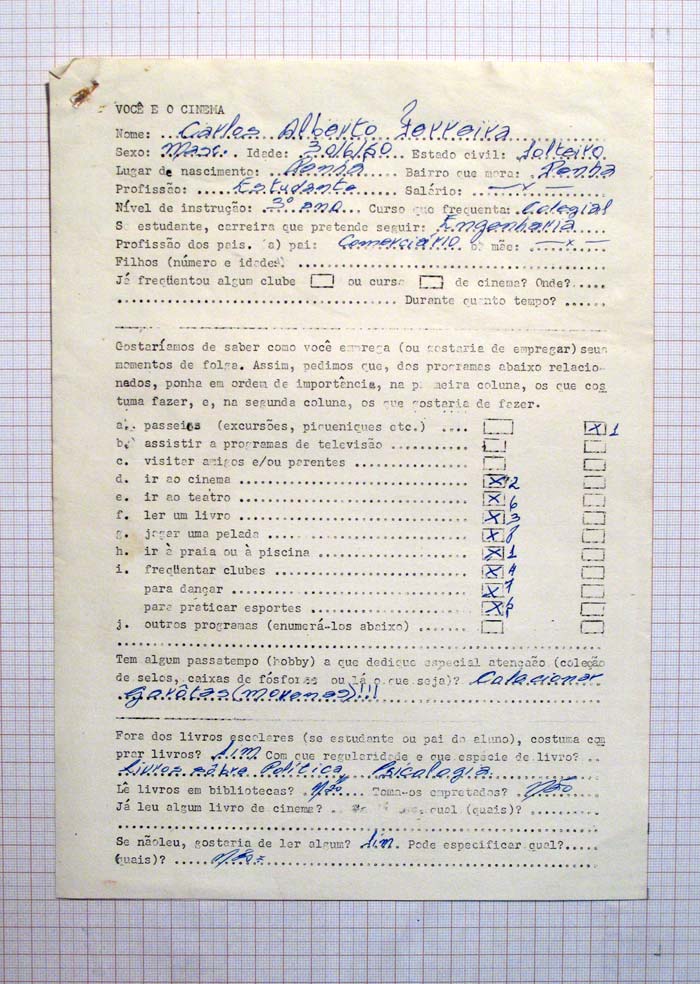 VOCÊ E O CINEMA
Nome: ..Carlos Alberto Ferreira
Sexo: Masc. . Idade: 30/6/60... Estado civil: Solteiro
Lugar de nascimento: Penha Bairro que mora: Penha
Profissão: ....Estudante...... Salário: — x —
Nível de instrução: .3º ano.. Curso que frequenta: Colegial
Se estudante, carreira que pretende seguir: Engenharia
Profissão dos pais. (a) pai: Comerciário b) mãe: — x —
Filhos (número e idades) ........................................
Já freqüentou algum clube ou curso de cinema? Onde?.....
........................................ Durante quanto tempo? ......
Gostaríamos de saber como você emprega (ou gostaria de empregar) seus
momentos de folga. Assim, pedimos que, dos programas abaixo relacio-
nados, ponha em ordem de importância, na primeira coluna, os que cos
tuma fazer, e, na segunda coluna, os que gostaria de fazer.
a. passeios (excursões, piqueniques etc.) .... X 1
b. assistir a programas de televisão ...........
c. visitar amigos e/ou parentes ................
d. ir ao cinema ................................ X 2
e. ir ao teatro ................................ X 6
f. ler um livro ................................ X 3
g. jogar uma pelada ............................ X 8
h. ir à praia ou à piscina ..................... X 1
i. freqüentar clubes ........................... X 4
para dançar ................................. X 7
para praticar esportes ...................... X
j. outros programas (enumerá-los abaixo) .......
Tem algum passatempo (hobby) a que dedique especial atençaão (coleção
de selos, caixas de fósforos ou lá o que seja)? Colacionar
garôtas (morenas)!!!
Fora dos livros escolares (se estudante ou pai de aluno), costuma com
prar livros? Sim. Com que regularidade e que espécie de livro? ..
Livros sôbre Política, Psicalogia
Lê livros em bibliotecas? .Não.... Toma-os emprestados? .Não
Já leu algum livro de cinema? qual (quais)? .........
Se nãoleu, gostaria de ler algum? Sim. Pode especificar qual?.....
(quais)? .....Não=